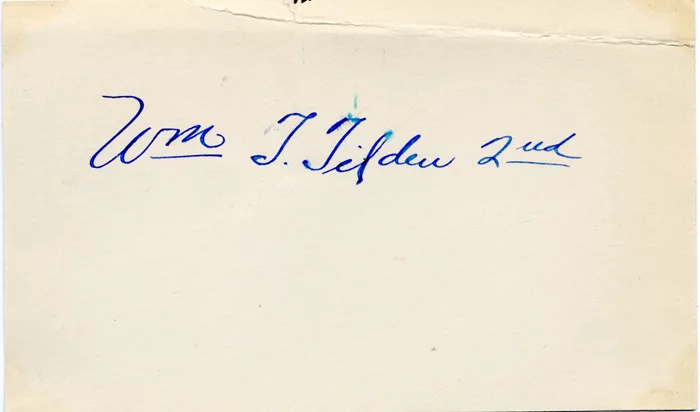 Wm T. Tilden 2nd